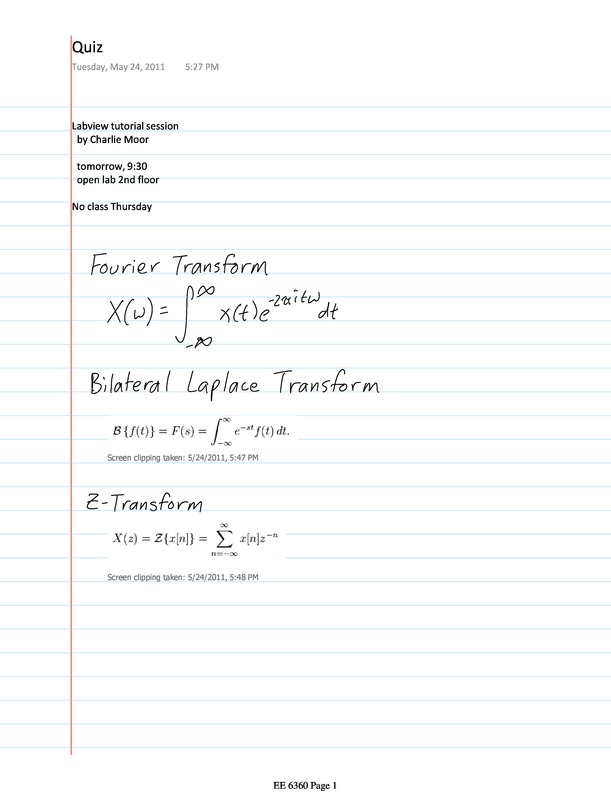 Quiz
Tuesday, May 24, 2011 5:27 PM
Labview tutorial session
by Charlie Moor
tomorrow, 9:30
open lab 2nd floor
No class Thursday
Fourier Transform
X(ω) = ∫_{-∞}^{∞} x(t)e^{-2πitω} dt
Bilateral Laplace Transform
𝓑{f(t)} = F(s) = ∫_{-∞}^{∞} e^{-st} f(t) dt.
Screen clipping taken: 5/24/2011, 5:47 PM
Z-Transform
X(z) = 𝒵{x[n]} = ∑_{n=-∞}^{∞} x[n]z^{-n}
Screen clipping taken: 5/24/2011, 5:48 PM
EE 6360 Page 1